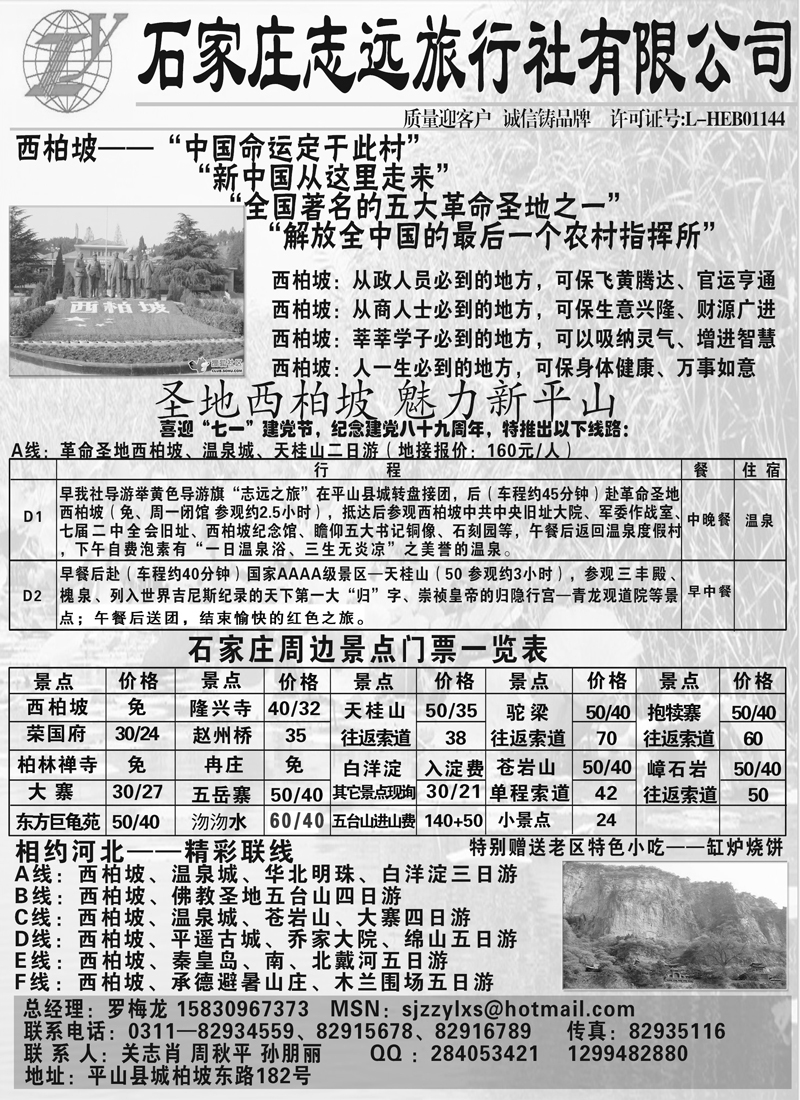 石家庄志远旅行社有限公司
质量迎客户 诚信铸品牌 许可证号:L-HEB01144
西柏坡——“中国命运定于此村”
“新中国从这里走来”
“全国著名的五大革命圣地之一”
“解放全中国的最后一个农村指挥所”
西柏坡
西柏坡：从政人员必到的地方，可保飞黄腾达、官运亨通
西柏坡：从商人士必到的地方，可保生意兴隆、财源广进
西柏坡：莘莘学子必到的地方，可以吸纳灵气、增进智慧
西柏坡：人一生必到的地方，可保身体健康、万事如意
圣地西柏坡 魅力新平山
喜迎“七一”建党节，纪念建党八十九周年，特推出以下线路：
A线：革命圣地西柏坡、温泉城、天桂山二日游（地接报价：160元/人）
行 程 餐 住宿
D1 早我社导游举黄色导游旗“志远之旅”在平山县城转盘接团，后（车程约45分钟）赴革命圣地
西柏坡（免、周一闭馆 参观约2.5小时），抵达后参观西柏坡中共中央旧址大院、军委作战室、
七届二中全会旧址、西柏坡纪念馆、瞻仰五大书记铜像、石刻园等，午餐后返回温泉度假村
，下午自费泡素有“一日温泉浴、三生无炎凉”之美誉的温泉。
中晚餐 温泉
D2 早餐后赴（车程约40分钟）国家AAAA级景区—天桂山（50 参观约3小时），参观三丰殿、
槐泉、列入世界吉尼斯纪录的天下第一大“归”字、崇祯皇帝的归隐行宫—青龙观道院等景
点；午餐后送团，结束愉快的红色之旅。
早中餐
石家庄周边景点门票一览表
景点 价格 景点 价格 景点 价格 景点 价格 景点 价格
西柏坡 免 隆兴寺 40/32 天桂山 50/35 驼梁 50/40 抱犊寨 50/40
荣国府 30/24 赵州桥 35 往返索道 38 往返索道 70 往返索道 60
柏林禅寺 免 冉庄 免 白洋淀 入淀费 苍岩山 50/40 嶂石岩 50/40
大寨 30/27 五岳寨 50/40 其它景点现询 30/21 单程索道 42 往返索道 50
东方巨龟苑 50/40 沕沕水 60/40 五台山进山费 140+50 小景点 24
相约河北——精彩联线
特别赠送老区特色小吃——缸炉烧饼
A线：西柏坡、温泉城、华北明珠、白洋淀三日游
B线：西柏坡、佛教圣地五台山四日游
C线：西柏坡、温泉城、苍岩山、大寨四日游
D线：西柏坡、平遥古城、乔家大院、绵山五日游
E线：西柏坡、秦皇岛、南、北戴河五日游
F线：西柏坡、承德避暑山庄、木兰围场五日游
总经理：罗梅龙 15830967373 MSN：sjzzylxs@hotmail.com
联系电话：0311—82934559、82915678、82916789 传真：82935116
联 系 人：关志肖 周秋平 孙朋丽 QQ：284053421 1299482880
地址：平山县城柏坡东路182号